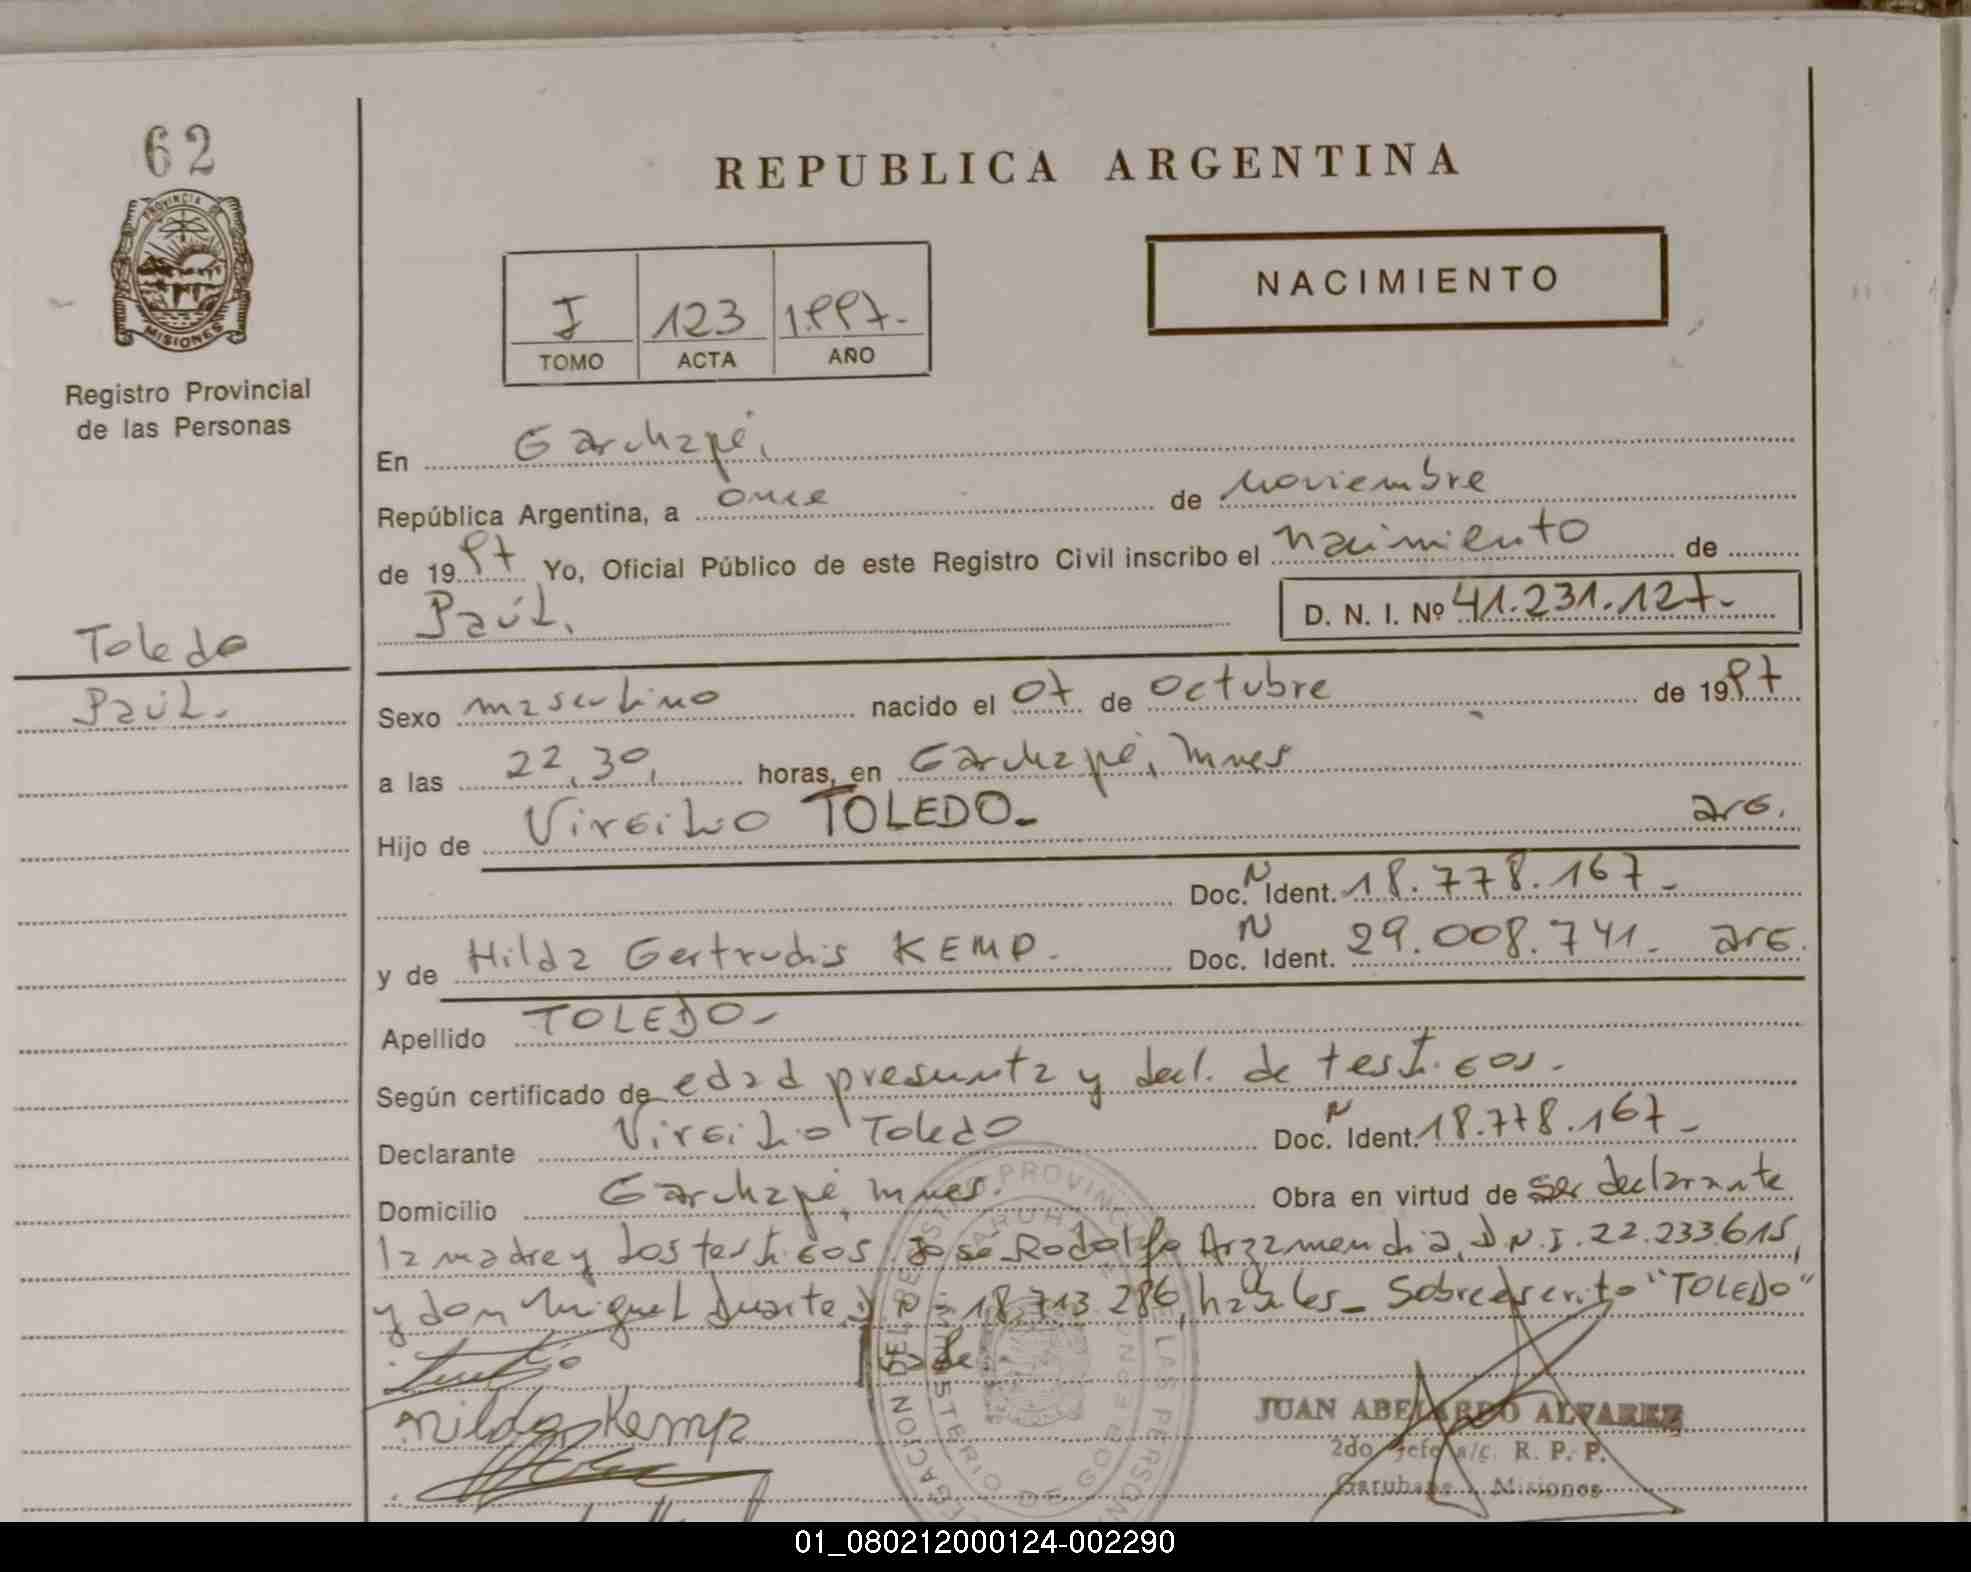 62
PROVINCIA DE
MISIONES
Registro Provincial
de las Personas
Toledo
Paúl.
REPUBLICA ARGENTINA
NACIMIENTO
I 123 1997.-
TOMO ACTA AÑO
En Garuhapé,
República Argentina, a once de noviembre
de 1997 Yo, Oficial Público de este Registro Civil inscribo el nacimiento de
Paúl. D. N. I. Nº 41.231.127.-
Sexo masculino nacido el 07 de octubre de 1997
a las 22,30, horas, en Garuhapé, Mnes
Hijo de Virgilio TOLEDO.- arg.
Doc. N Ident. 18.778.167.-
y de Hilda Gertrudis KEMP.- Doc. N Ident. 29.008.741.- arg.
Apellido TOLEDO.-
Según certificado de edad presunta y decl. de testigos.-
Declarante Virgilio Toledo Doc. N Ident. 18.778.167.-
Domicilio Garuhapé, Mnes. Obra en virtud de ser declarante
la madre y los testigos José Rodolfo Arzamendia, D.N.I. 22.233615,
y don Miguel Duarte, D N I 18.713.286, hábiles_ Sobreescrito "TOLEDO"
Vale.
Hilda Kemp
JUAN ABELARDO ALVAREZ
2do Jefe a/c. R. P. P.
Garuhape - Misiones
01_080212000124-002290